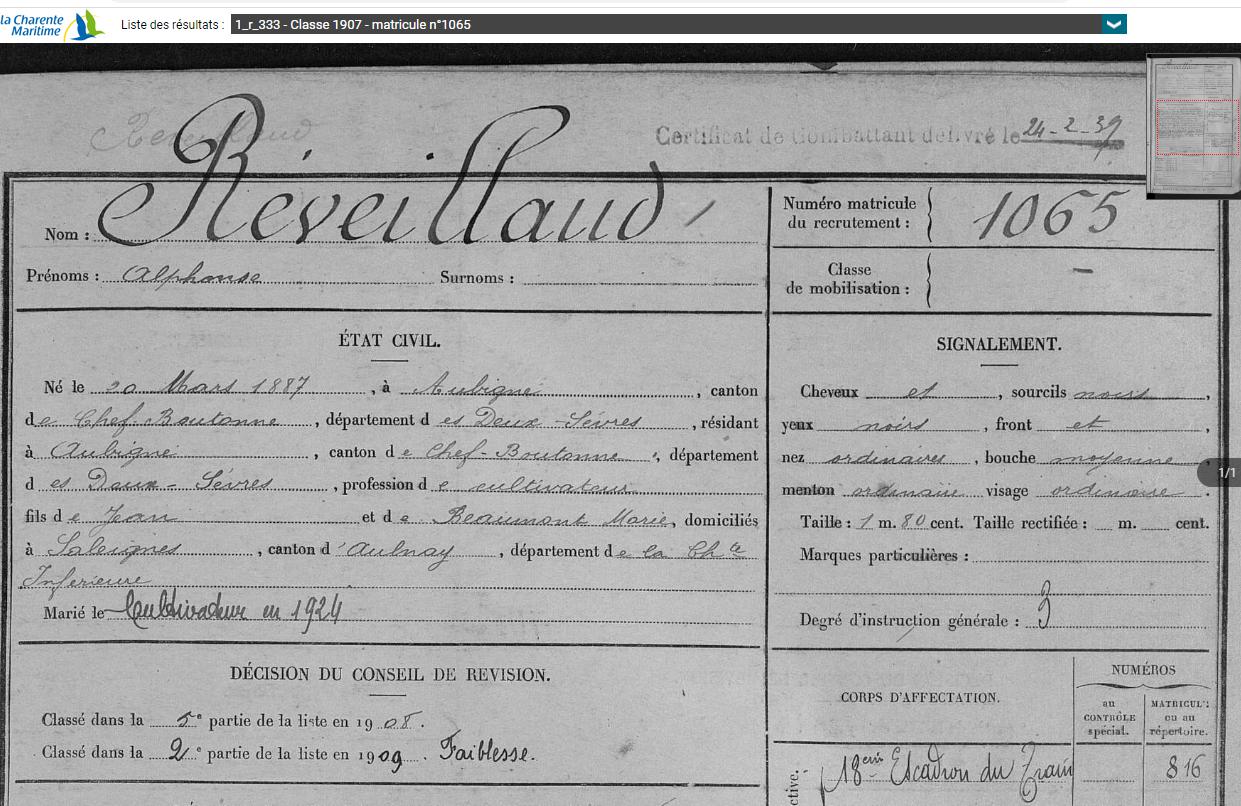 la Charente
Maritime
Liste des résultats : 1_r_333 - Classe 1907 - matricule n°1065
Reveillaud
Certificat de Combattant délivré le 24-2-39
Nom : Réveillaud
Numéro matricule
du recrutement : 1065
Prénoms : Alphonse Surnoms :
Classe
de mobilisation : —
ÉTAT CIVIL.
SIGNALEMENT.
Né le 20 Mars 1887, à Aubigné, canton
de Chef-Boutonne, département des Deux-Sèvres, résidant
à Aubigné, canton de Chef-Boutonne, département
des Deux-Sèvres, profession de cultivateur
fils de Jean et de Beaumont Marie, domiciliés
à Saleignes, canton d'Aulnay, département de la Chte
Inférieure
Marié le Cultivateur en 1924
Cheveux et, sourcils noirs,
yeux noirs, front et,
nez ordinaires, bouche moyenne,
menton ordinaire visage ordinaire.
Taille : 1 m. 80 cent. Taille rectifiée : m. cent.
Marques particulières :
Degré d'instruction générale : 3
1/1
DÉCISION DU CONSEIL DE REVISION.
Classé dans la 5e partie de la liste en 1908.
Classé dans la 2e partie de la liste en 1909. Faiblesse.
CORPS D'AFFECTATION.
NUMÉROS
au
CONTRÔLE
spécial.
MATRICULE
ou au
répertoire.
ctive.
18eme Escadron du Train
816